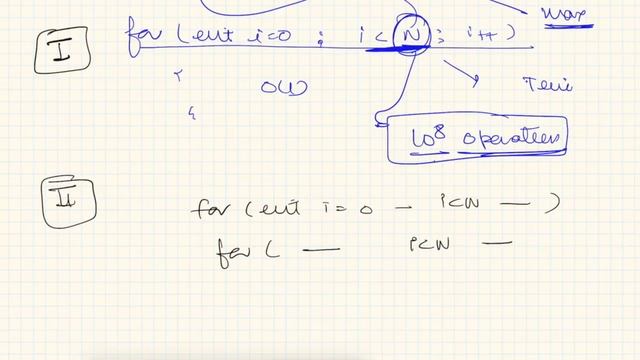 max
I for (int i=0 ; i < N ; i++)
O(1)
Time
10^8 operations
II for (int i=0 — i<N — )
for ( — i<N —